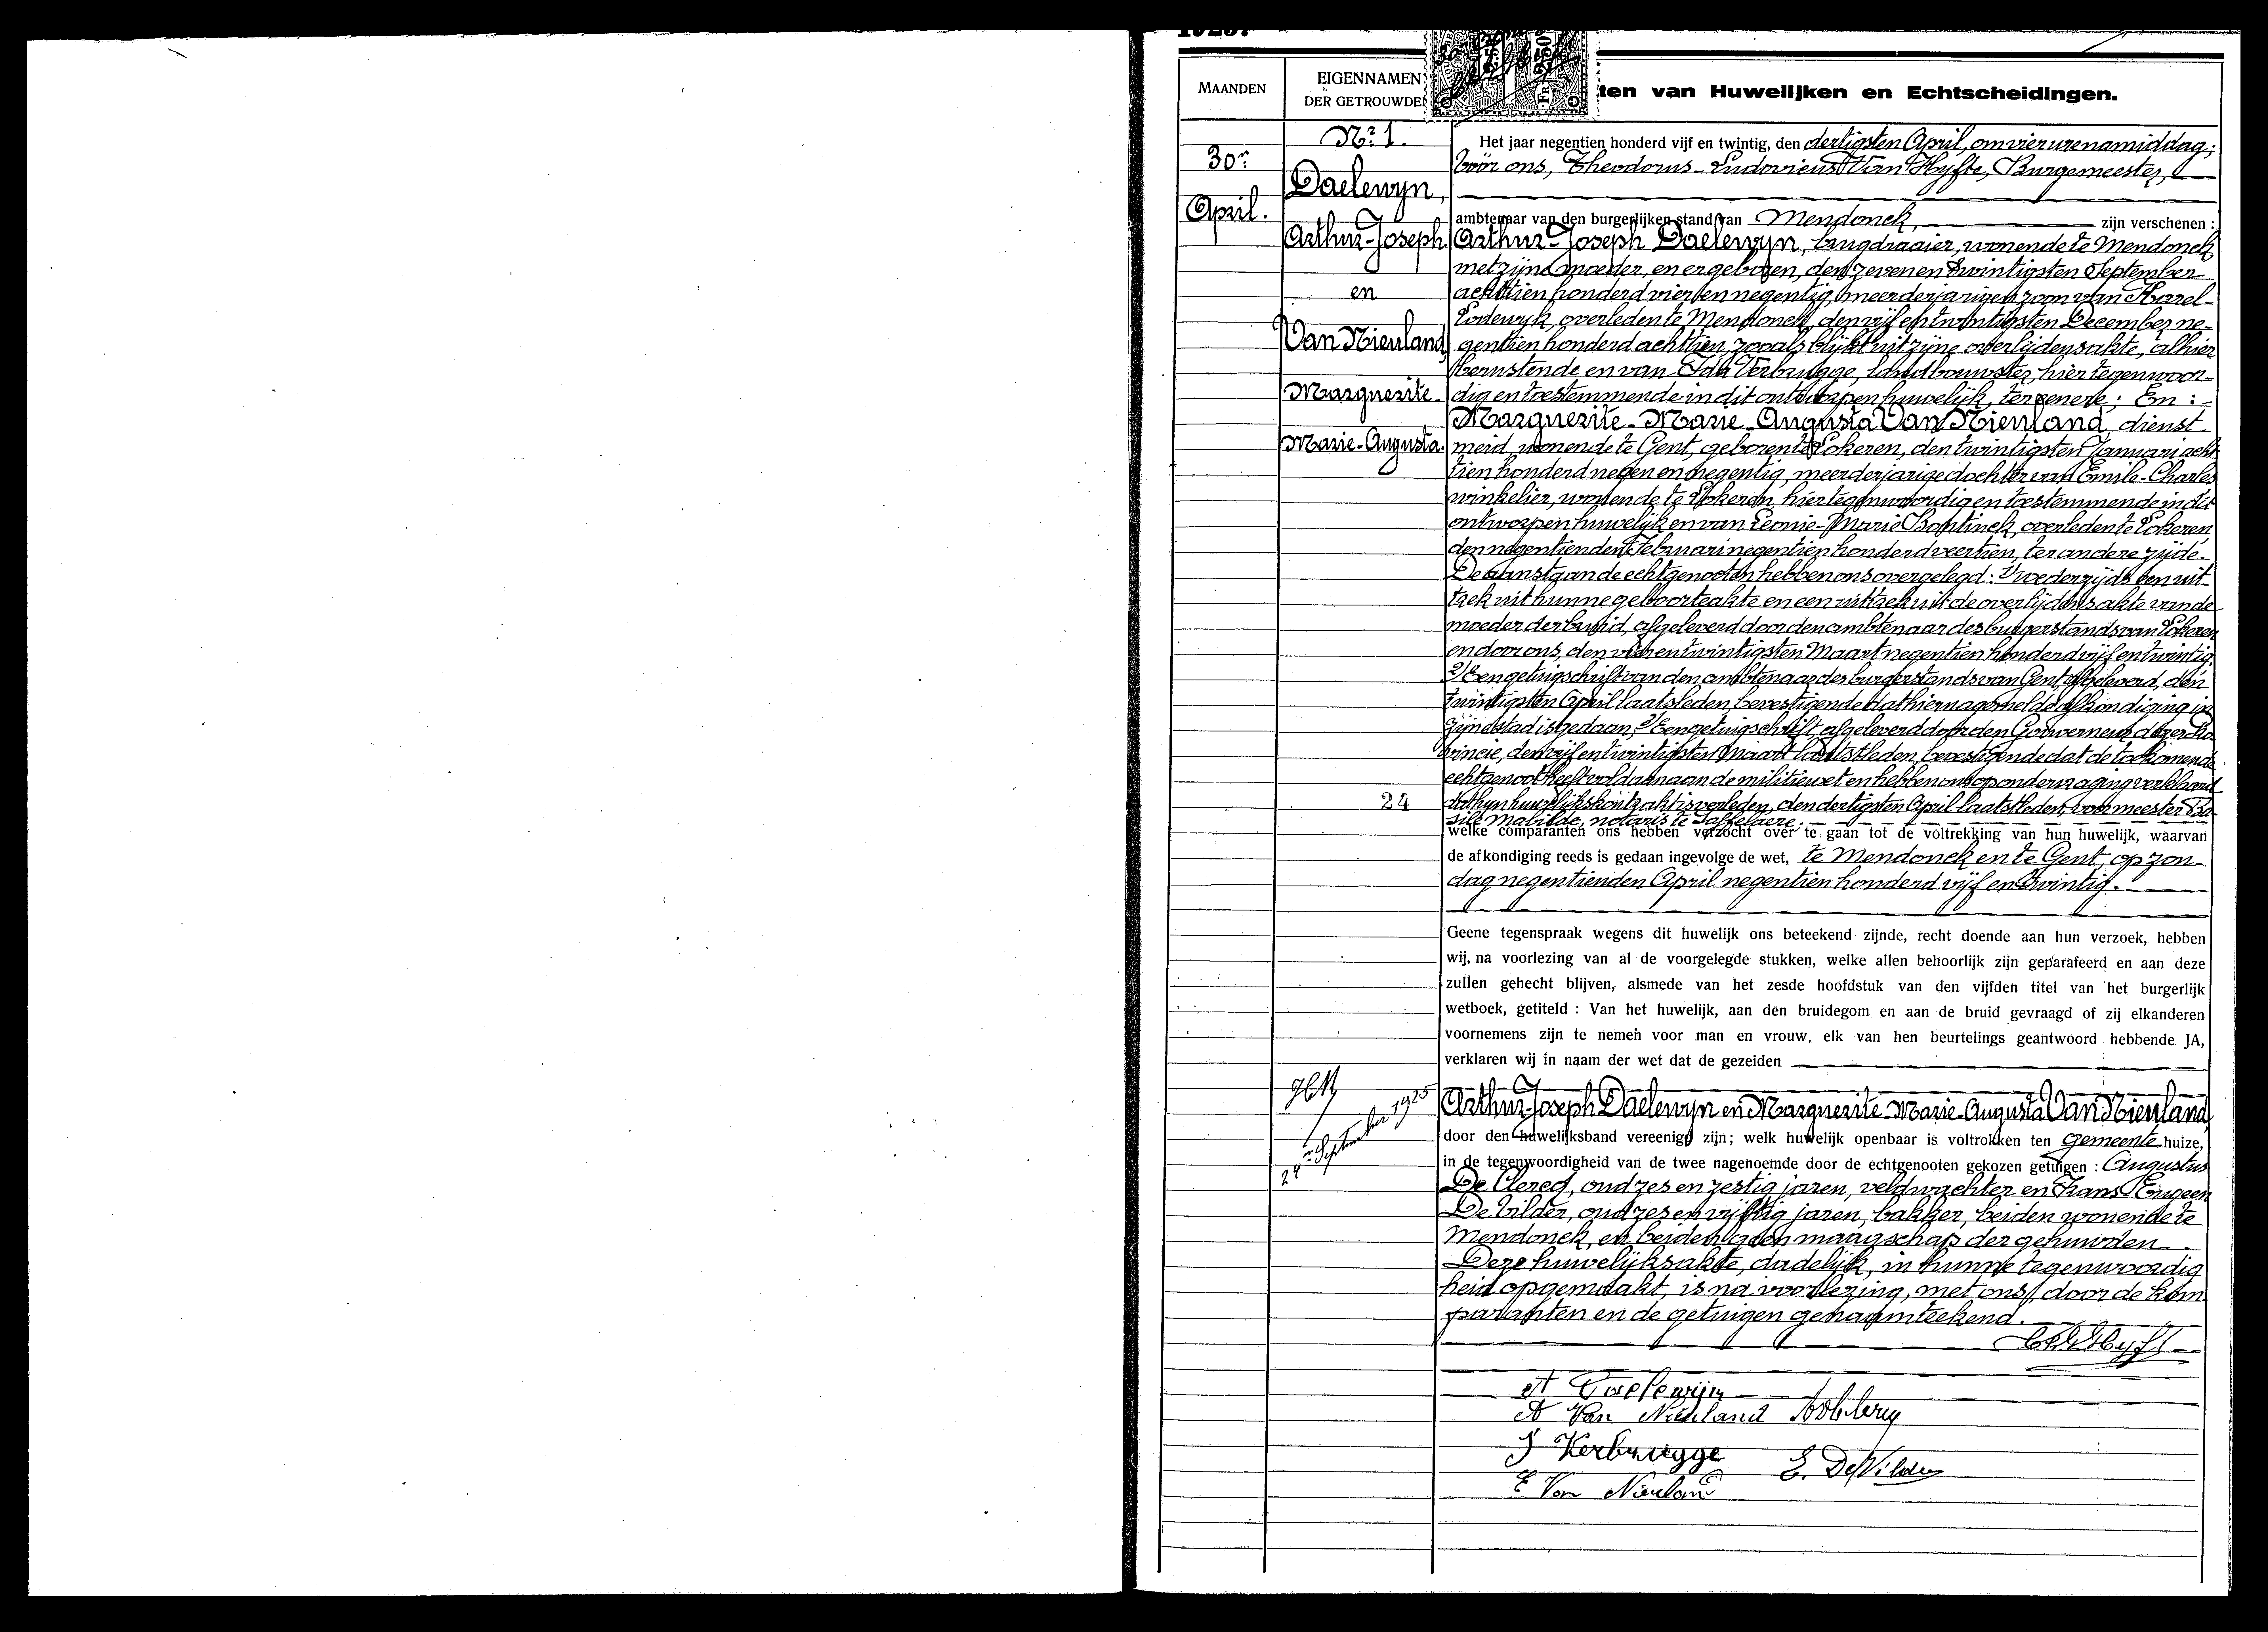 1925.
MAANDEN
EIGENNAMEN
DER GETROUWDE
ten van Huwelijken en Echtscheidingen.
30n
April.
Nr. 1.
Daelewyn,
Arthur-Joseph
en
Van Nienland
Marguerite-
Marie-Augusta.
Het jaar negentien honderd vijf en twintig, den dertigsten April, om vier uren namiddag;
vóór ons, Theodorus-Ludovicus Van Hyfte, Burgemeester,
ambtenaar van den burgerlijken stand van Mendonck, zijn verschenen :
Arthur-Joseph Daelewyn, brugdraaier, wonende te Mendonck
met zijne moeder, en er geboren, den zeven en twintigsten September
achttien honderd vier en negentig, meerderjarigen zoon van Karel-
Lodewyk, overleden te Mendonck, den vijf en twintigsten December ne-
gentien honderd achttien, zooals blijkt uit zijne overlijdensakte, alhier
berustende en van Ida Verbrugge, landbouwster, hier tegenwoor-
dig en toestemmende in dit ontworpen huwelijk, ter eenere; En :-
Marguerite-Marie-Augusta Van Nienland, dienst
meid, wonende te Gent, geboren te Lokeren, den twintigsten Januari acht
tien honderd negen en negentig, meerderjarige dochter van Emile-Charles
winkelier, wonende te Lokeren, hier tegenwoordig en toestemmende in dit
ontworpen huwelijk en van Leonie-Marie Bontinck, overleden te Lokeren,
den negentienden Februari negentien honderd veertien, ter andere zijde.
De aanstaande echtgenooten hebben ons overgelegd: 1/ wederzijds een uit-
trek uit hunne geboorteakte en een uittrek uit de overlijdensakte van de
moeder der bruid, afgeleverd door den ambtenaar des burgerstands van Lokeren
en door ons, den vier en twintigsten Maart negentien honderd vijf en twintig.
2/ Een getuigschrift van den ambtenaar des burgerstands van Gent, afgeleverd, den
twintigsten April laatsleden, bevestigende dat hiernagemelde afkondiging in
zijne stad is gedaan, 3/ Een getuigschrift, afgeleverd door den Gouverneur dezer Pro
vincie, den vijf en twintigsten Maart laatstleden, bevestigende dat de toekomende
echtgenoot heeft voldaan aan de militiewet en hebben ons op ondervraging verklaard
dat hun huwelijkskontrakt is verleden, den dertigsten April laatstleden, voor meester Ba-
24
sile Mabilde, notaris te Saffelaere;
welke comparanten ons hebben verzocht over te gaan tot de voltrekking van hun huwelijk, waarvan
de afkondiging reeds is gedaan ingevolge de wet, te Mendonck en te Gent, op zon-
dag negentienden April negentien honderd vijf en twintig.
Geene tegenspraak wegens dit huwelijk ons beteekend zijnde, recht doende aan hun verzoek, hebben
wij, na voorlezing van al de voorgelegde stukken, welke allen behoorlijk zijn geparafeerd en aan deze
zullen gehecht blijven, alsmede van het zesde hoofdstuk van den vijfden titel van het burgerlijk
wetboek, getiteld : Van het huwelijk, aan den bruidegom en aan de bruid gevraagd of zij elkanderen
voornemens zijn te nemen voor man en vrouw, elk van hen beurtelings geantwoord hebbende JA,
verklaren wij in naam der wet dat de gezeiden
24n September 1925
Arthur-Joseph Daelewyn en Marguerite-Marie-Augusta Van Nienland,
door den huwelijksband vereenigd zijn; welk huwelijk openbaar is voltrokken ten gemeente huize,
in de tegenwoordigheid van de twee nagenoemde door de echtgenooten gekozen getuigen : Augustus
De Clercq, oud zes en zestig jaren, veldwachter en Frans Eugeen
De Vilder, oud zes en vijftig jaren, bakker, beiden wonende te
Mendonck, en beiden geen maagschap der gehuwden.
Deze huwelijksakte, dadelijk, in hunne tegenwoordig
heid opgemaakt, is na voorlezing, met ons, door de kom
paranten en de getuigen genaamteekend.
A Daelewijn
A Van Nienland
J Verbrugge
E. DeVilder
E Van Nienland